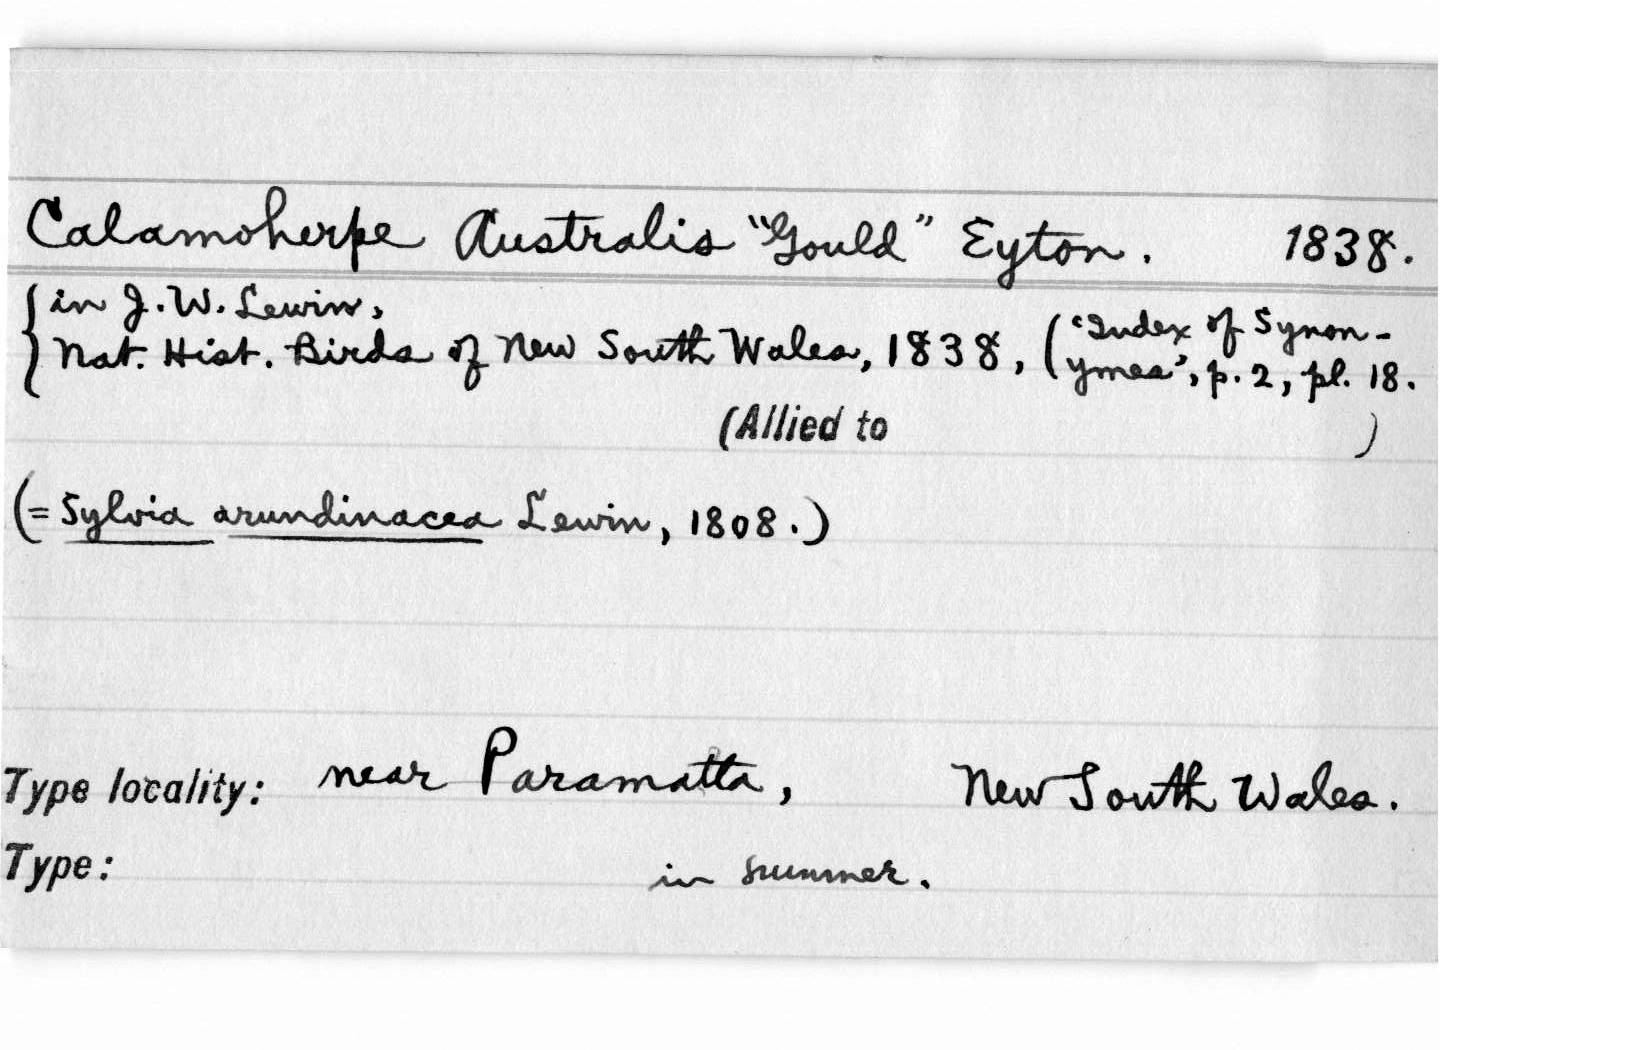 Calamoherpe Australis "Gould" Eyton. 1838.
in J. W. Lewin,
Nat. Hist. Birds of New South Wales, 1838, ('Index of Synon-
ymes', p. 2, pl. 18.
(Allied to )
(= Sylvia arundinacea Lewin, 1808.)
Type locality: near Paramatta, New South Wales.
Type: in summer.